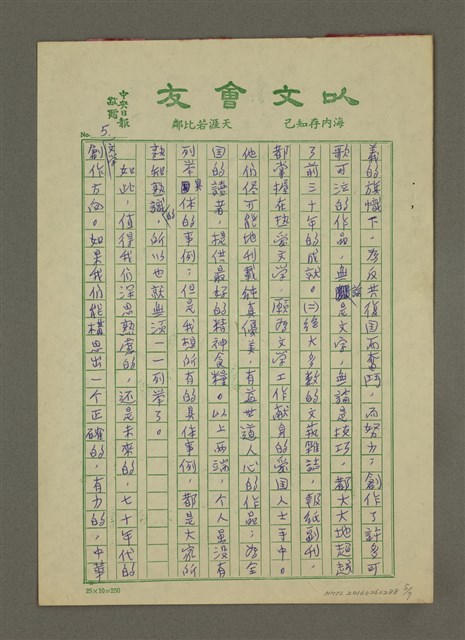 以文會友
海內存知己　天涯若比鄰
中央日報
敬贈
No. 5.
義的旗幟下，為反共復國而奮鬥，而努力；創作了許多可
歌可泣的作品，無論是文字，無論是技巧，都大大地超越
了前三十年的成就。㈡絕大多數的文藝雜誌，報紙副刊，
都掌握在熱愛文學，願為文學工作獻身的愛国人士手中。
他们儘可能地刊載純真優美，有益世道人心的作品；為全
国的讀者，提供最好的精神食糧。以上两端，个人虽沒有
列举具体的事例；但是我想所有的具体事例，都是大家所
熟知熟識的，所以也就無須一一列举了。
如此，值得我们深思熟慮的，还是未來的，七十年代的
文学創作方向。如果我们能構思出一个正確的，有力的，中華
25×10=250
NMTL20160260288 5/7